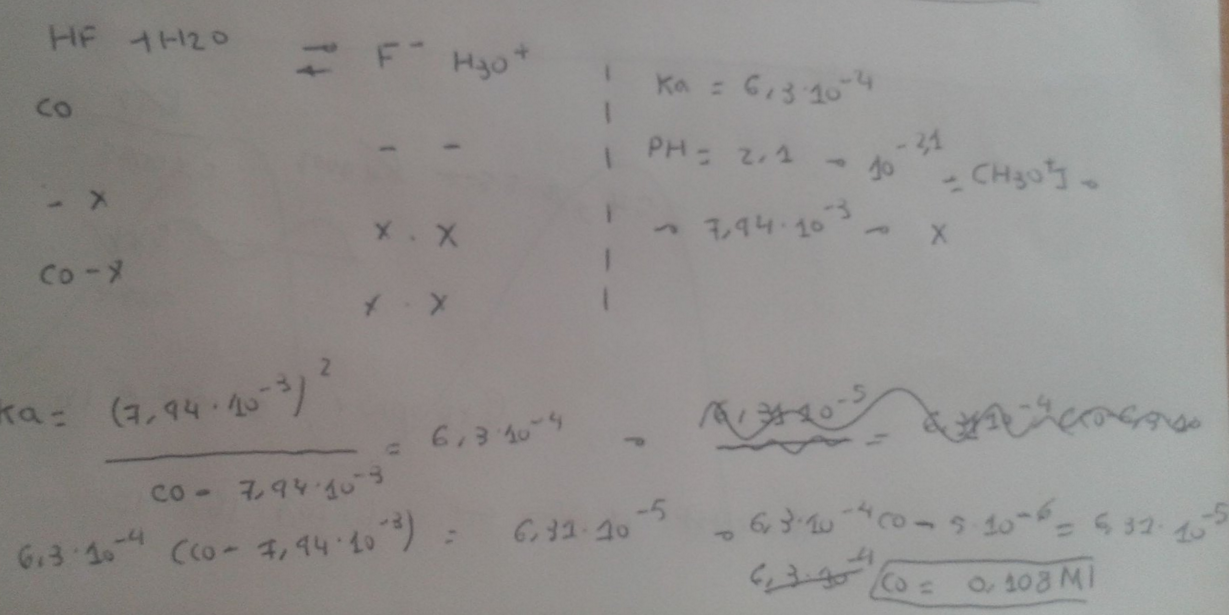 HF + H2O ⇌ F⁻ H3O⁺
Ka = 6,3·10⁻⁴
co
- -
PH = 2,1 → 10⁻²,¹ = [H3O⁺] →
- x
x . x
→ 7,94·10⁻³ → x
co - x
x . x
Ka = (7,94·10⁻³)² / co - 7,94·10⁻³ = 6,3·10⁻⁴ →
6,3·10⁻⁴ (co - 7,94·10⁻³) = 6,31·10⁻⁵ → 6,3·10⁻⁴ co - 5·10⁻⁶ = 6,31·10⁻⁵
6,3·10⁻⁴ co = 0,108 M